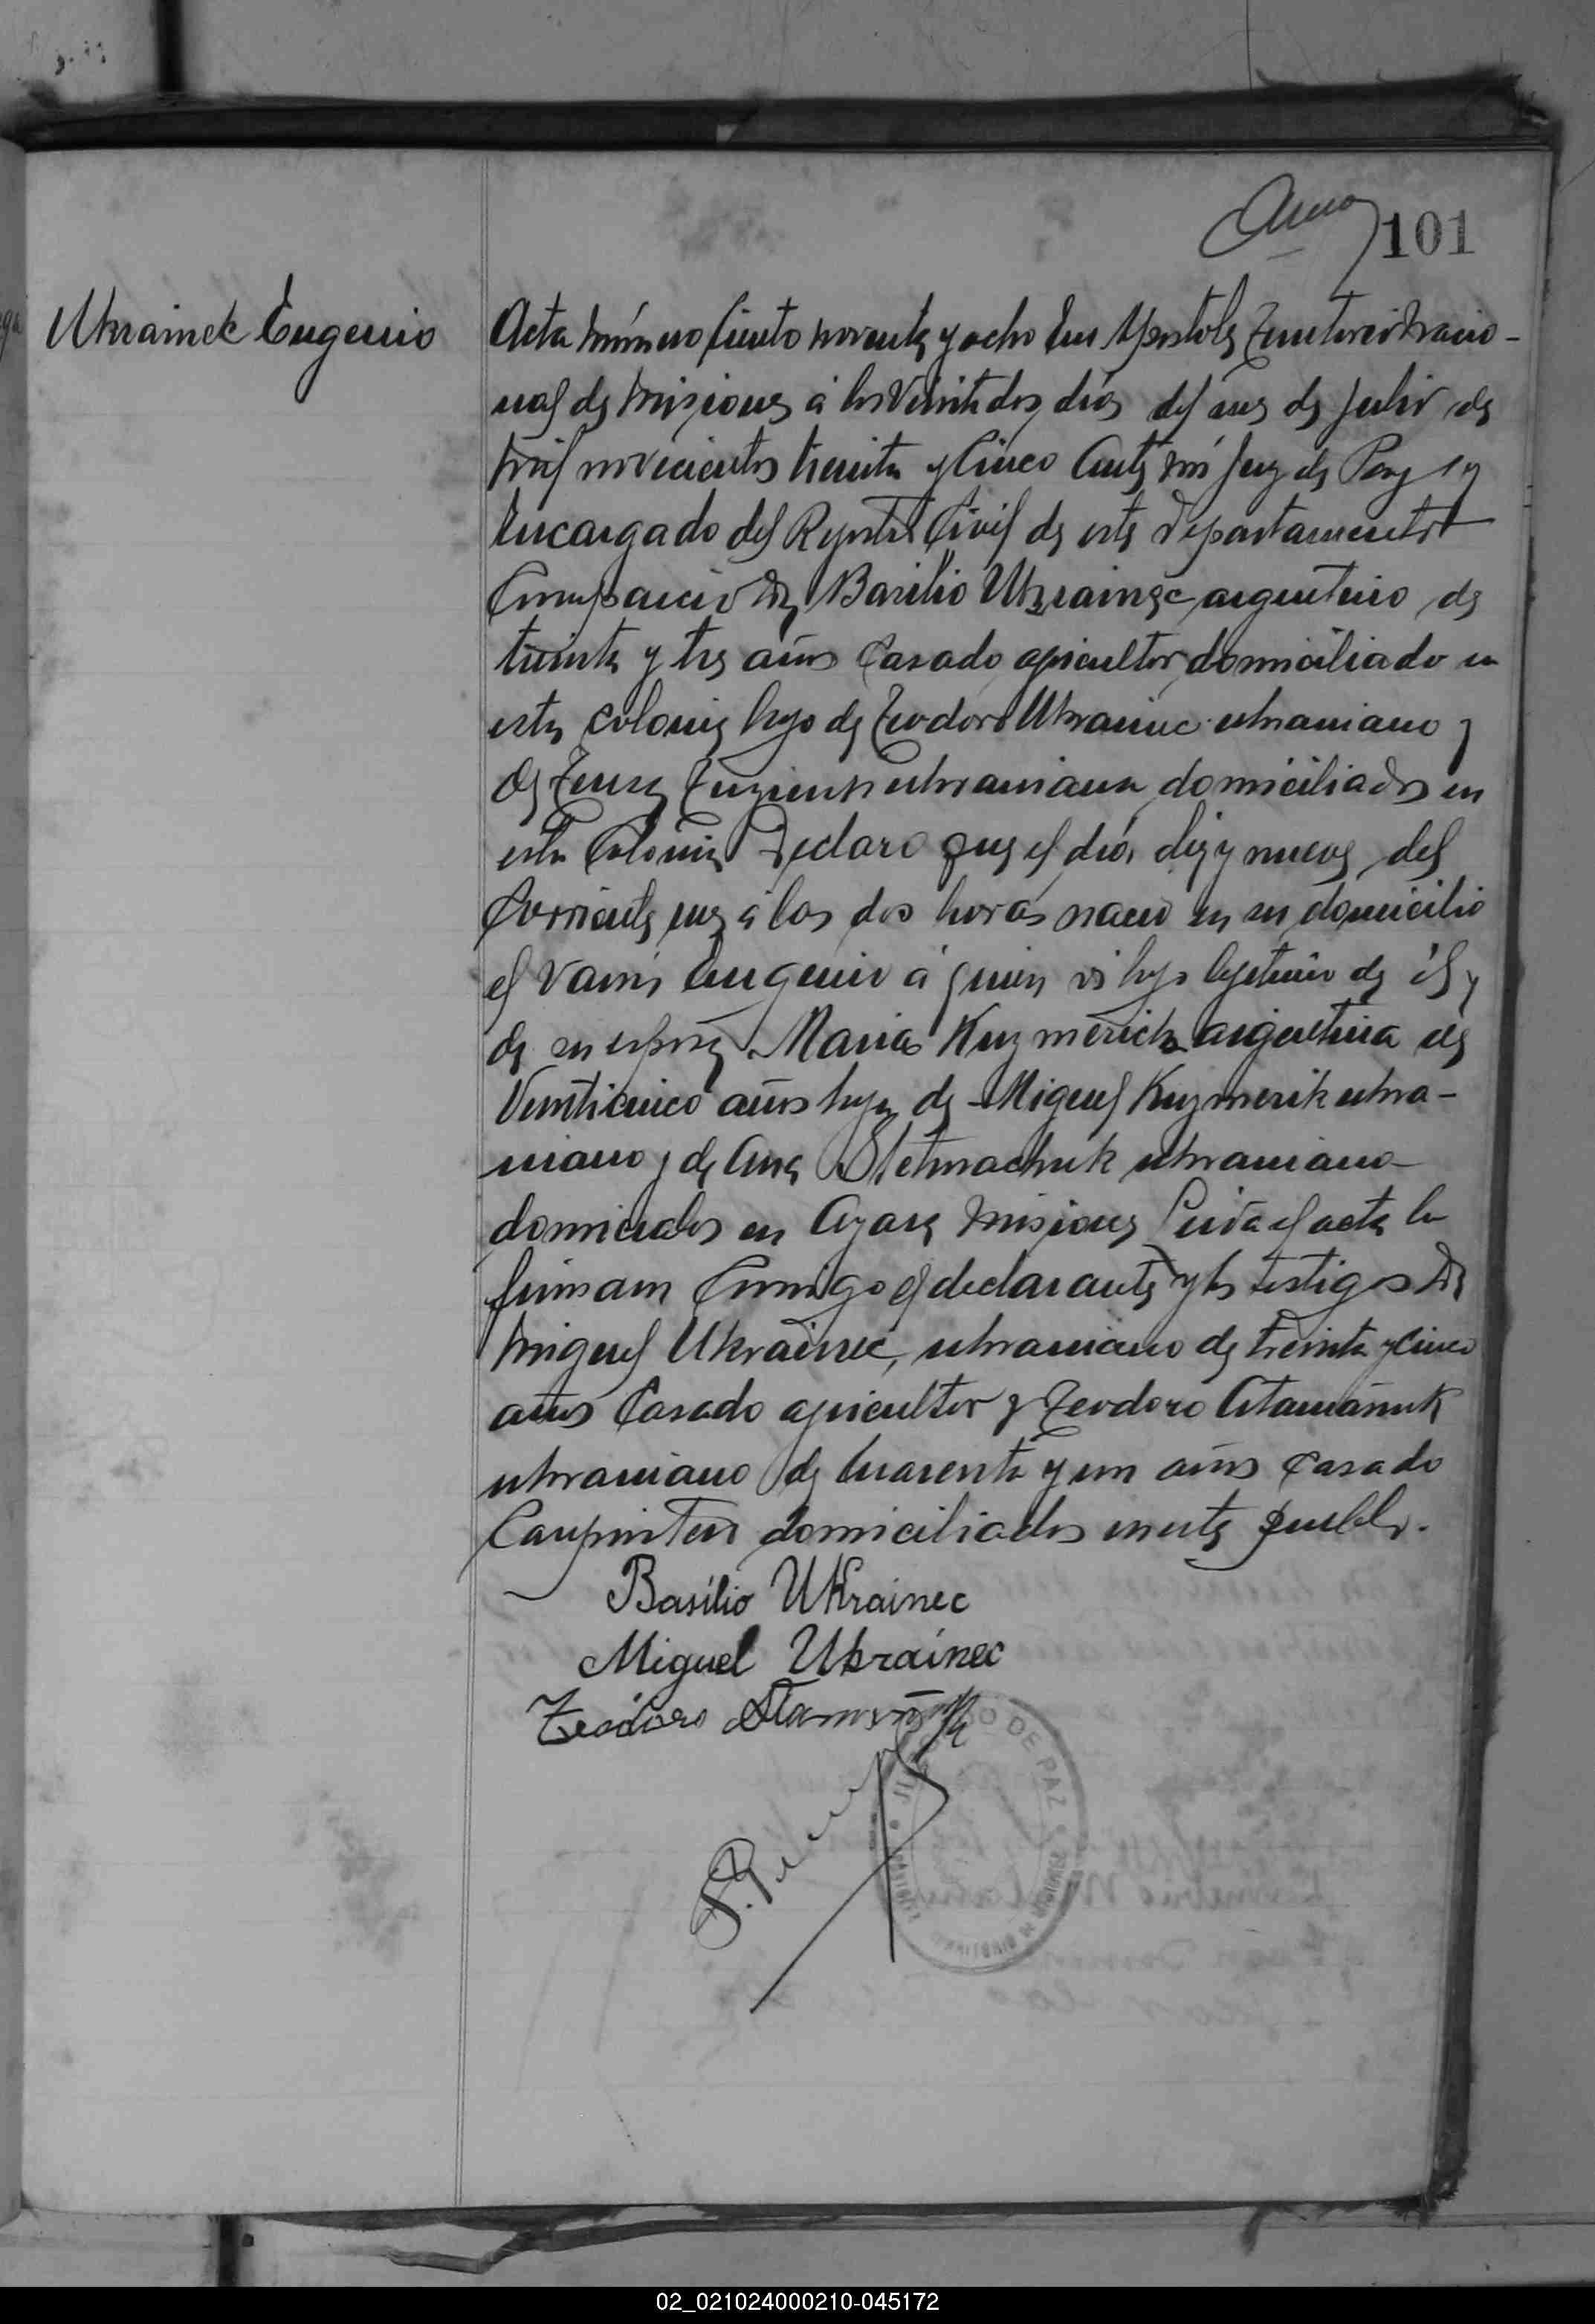 101
Ukrainek Eugenio
Acta número ciento noventa y ocho En Apostoles Territorio Nacio-
nal de Misiones á los veintidos dias del mes de Julio de
mil novecientos treinta y cinco Ante mí Juez de Paz y
Encargado del Registro Civil de este Departamento
Compareció Don Basilio Ukrainec argentino de
treinta y tres años casado agricultor domiciliado en
esta colonia hijo de Teodoro Ukrainec ukraniano y
de ukraniana domiciliados en
esta Colonia Declaro que el día diez y nueve del
corriente mes á las dos horas nació en su domicilio
el varón Eugenio á quien hijo legitimo de él y
de su esposa Maria Kuzmerick argentina de
Veinticinco años hija de Miguel Kuzmerik ukra-
niano y de Ana Stetmachuk ukraniano
domiciados en Azara Misiones Leida el acta la
firmam conmigo el declarante y los testigos Don
Miguel Ukrainec, ukraniano de treinta y cinco
años casado agricultor y Teodoro Atamañuk
ukraniano de cuarenta y un años casado
Carpintero domiciliados en este pueblo.
Basilio Ukrainec
Miguel Ukrainec
Teodoro Atamañuk
JUZGADO DE PAZ
02_021024000210-045172